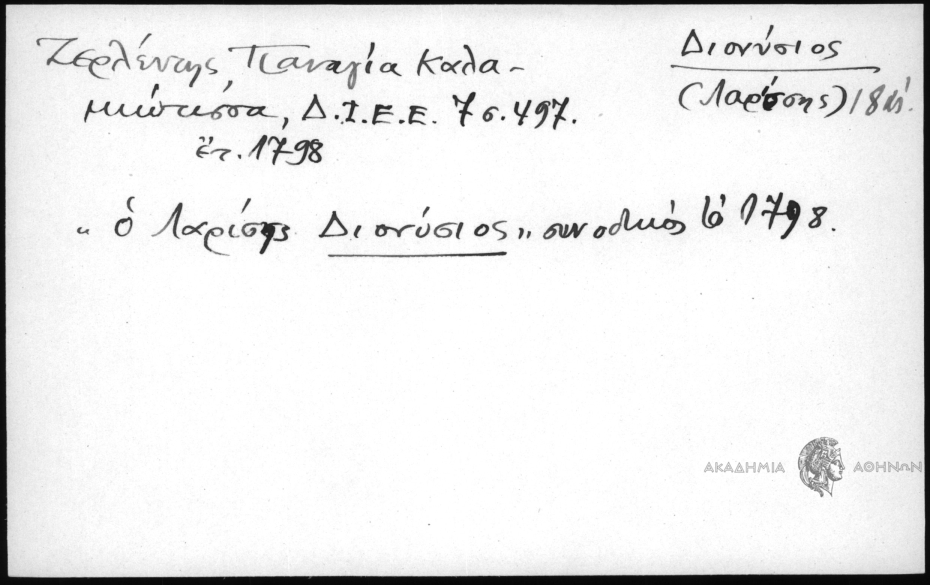 Ζερλέντης, Παναγία Καλα-
μιώτισσα, Δ.Ι.Ε.Ε. 7 σ. 497.
ἔτ. 1798
Διονύσιος
(Λαρίσσης) 18
„ ὁ Λαρίσης Διονύσιος „ συνοδικός 1798.
ΑΚΑΔΗΜΙΑ ΑΘΗΝΩΝ